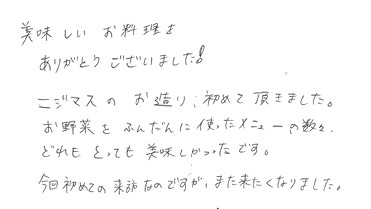 美味しい お料理を
ありがとう ございました!
ニジマスの お造り、初めて 頂きました。
お野菜を ふんだんに 使ったメニューの数々、
どれも とっても 美味しかったです。
今回初めての 来訪なのですが、また来たくなりました。